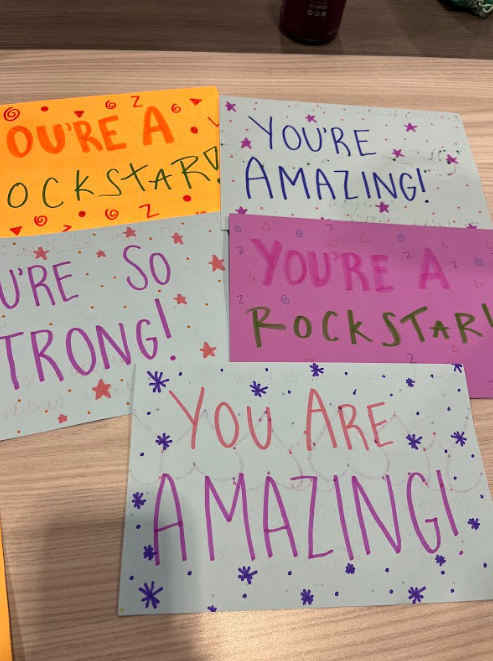 OU'RE A
OCKSTAR!
YOU'RE
AMAZING!
U'RE SO
TRONG!
YOU'RE A
ROCKSTAR!
YOU ARE
AMAZING!